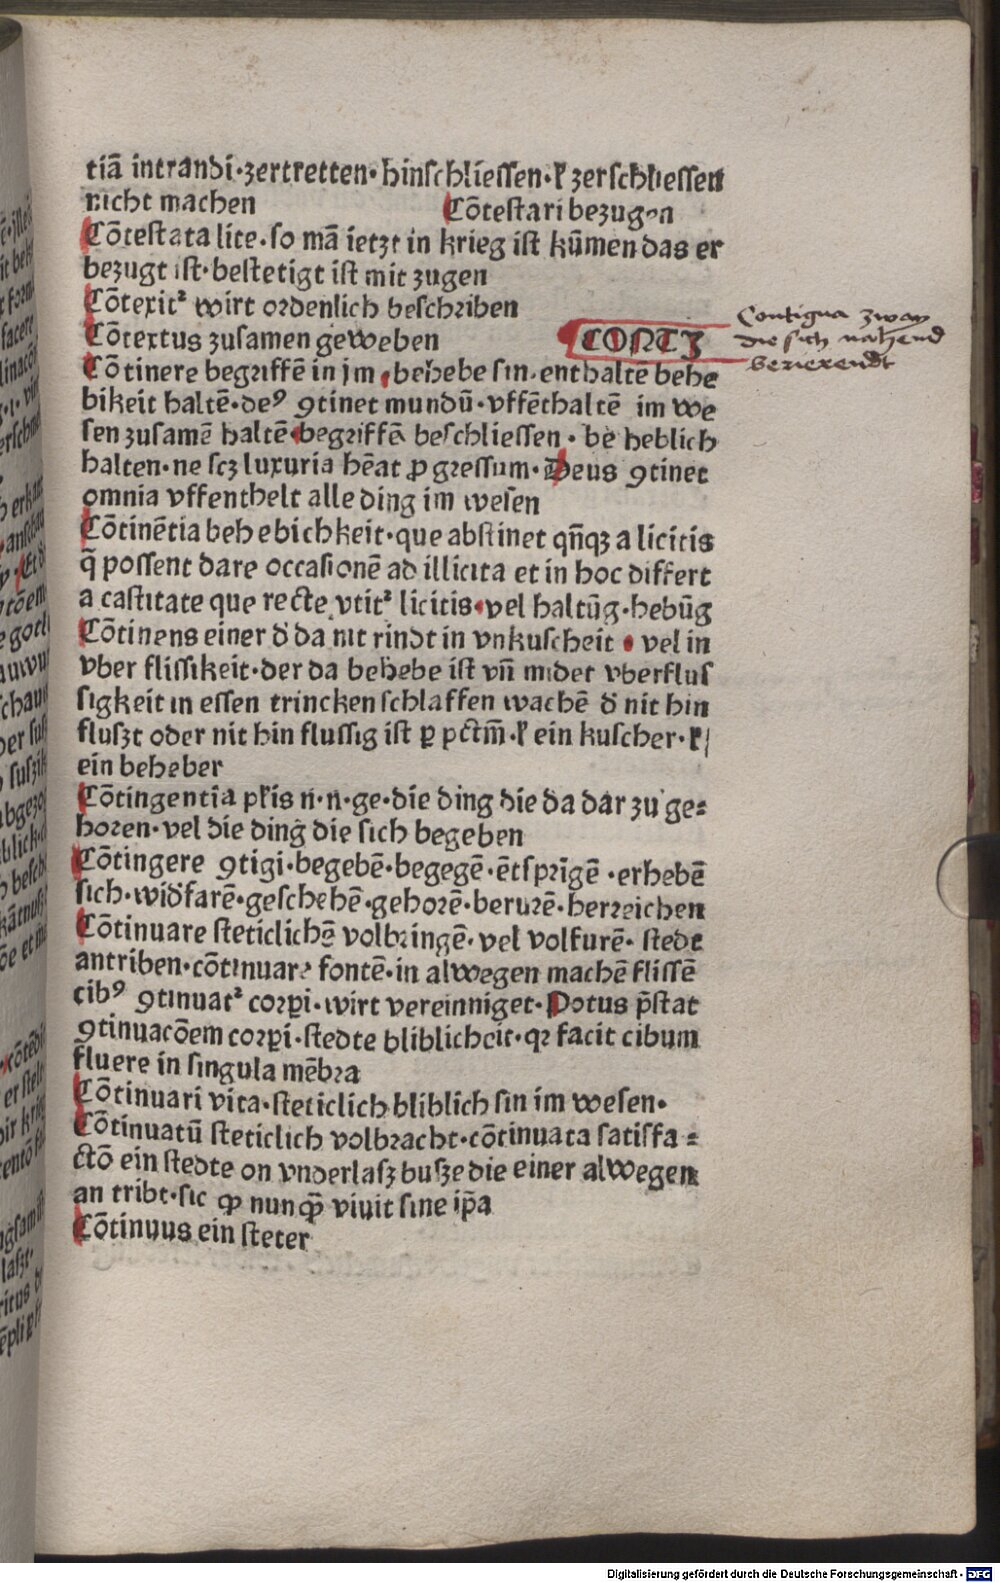 tiā intrandi·zertretten·hinſchlieſſen·ꝉ zerſchlieſſen
nicht machen Cōteſtari bezugen
Cōteſtata lite·ſo mā ietzt in krieg iſt kūmen das er
bezugt iſt·beſtetigt iſt mit zugen
Cōtexitꝛ wirt ordenlich beſchriben
Cōtextus zuſamen geweben
CONTI
Contigua zway
die sich nahend
berierendt
Cōtinere begriffē in jm·behebe ſin·enthaltē behe
bikeit haltē·deꝰ ꝯtinet mundū·vffēthaltē im we
ſen zuſamē haltē·begriffē beſchlieſſen·be heblich
halten·ne ſcꝫ luxuria hēat ꝓgreſſum·Deus ꝯtinet
omnia vffenthelt alle ding im weſen
Cōtinētia behebichkeit·que abſtinet qn̄qꝫ a licitis
q̄ poſſent dare occaſionē ad illicita et in hoc differt
a caſtitate que recte vtitꝛ licitis·vel haltūg·hebūg
Cōtinens einer d̄ da nit rindt in vnkuſcheit·vel in
vber fliſſikeit·der da behebe iſt vn̄ midet vberfluſ
ſigkeit in eſſen trincken ſchlaffen wachē d̄ nit hin
fluſzt oder nit hin fluſſig iſt ꝑ pctm̄·ꝉ ein kuſcher·ꝉ
ein beheber
Cōtingentia pꝉis n·n·ge·die ding die da dar zu ge⸗
horen·vel die ding die ſich begeben
Cōtingere ꝯtigi·begebē·begegē·ētſprīgē·erhebē
ſich·wid̄farē·geſchehē·gehorē·berurē·herreichen
Cōtinuare ſteticlichē volbringē·vel volfurē·ſtede
antriben·cōtinuare fontē·in alwegen machē fliſſē
cibꝰ ꝯtinuatꝛ corꝑi·wirt vereinniget·Potus p̄ſtat
ꝯtinuacōem corꝑi·ſtedte bliblicheit·qꝛ facit cibum
fluere in ſingula mēbra
Cōtinuari vita·ſteticlich bliblich ſin im weſen·
Cōtinuatū ſteticlich volbracht·cōtinuata ſatiſfa⸗
ctō ein ſtedte on vnderlaſz buſze die einer alwegen
an tribt·ſic ꝙ nunꝗ̄ viuit ſine ip̄a
Cōtinuus ein ſteter
Digitalisierung gefördert durch die Deutsche Forschungsgemeinschaft - DFG